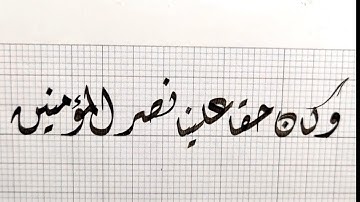 وكان حقا علينا نصر المؤمنين